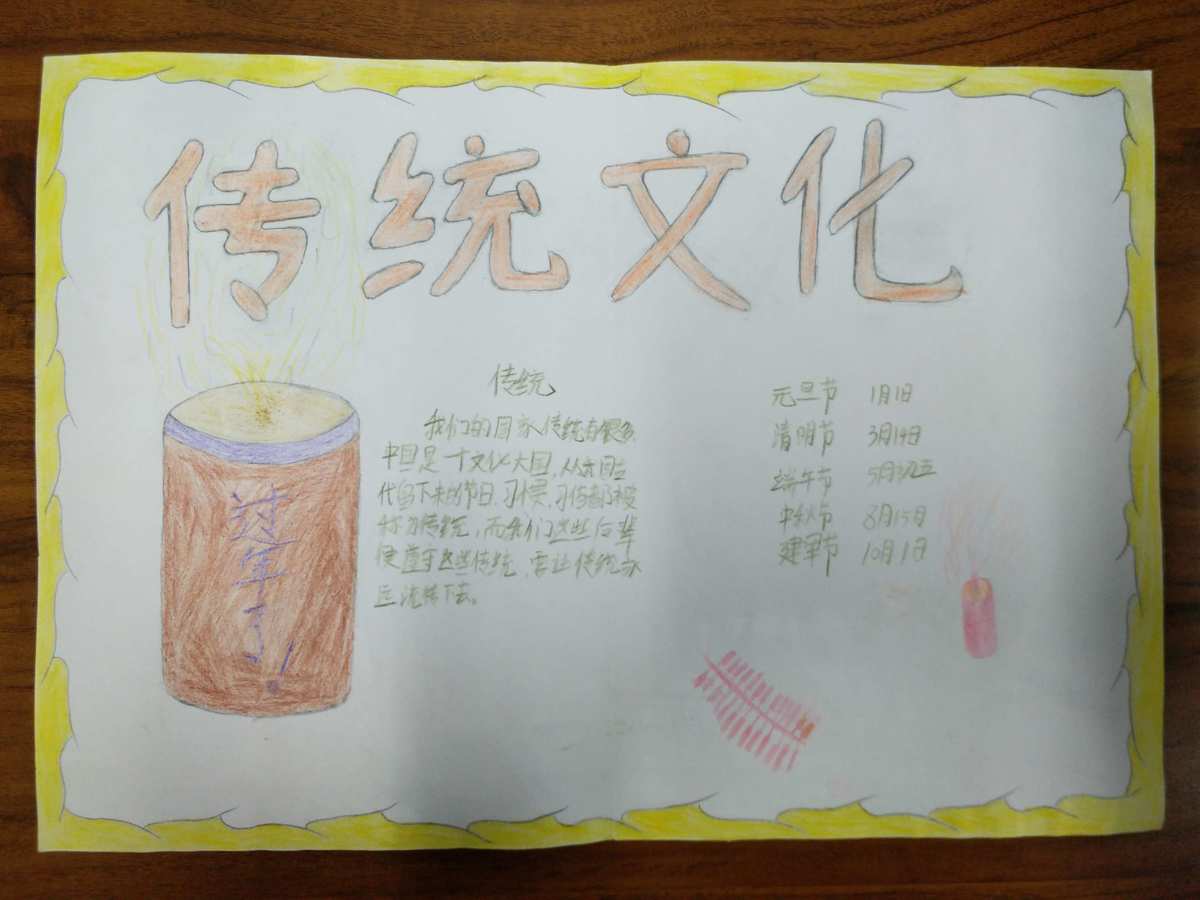 传统文化
过年了！
传统
我们的国家传统有很多
中国是一个文化大国，从古
代留下来的节日、习惯、习俗都被
称为传统，而我们这些后辈
便遵守这些传统，要让传统永
远流传下去。
元旦节 1月1日
清明节 3月14日
端午节 5月初五
中秋节 8月15日
建军节 10月1日